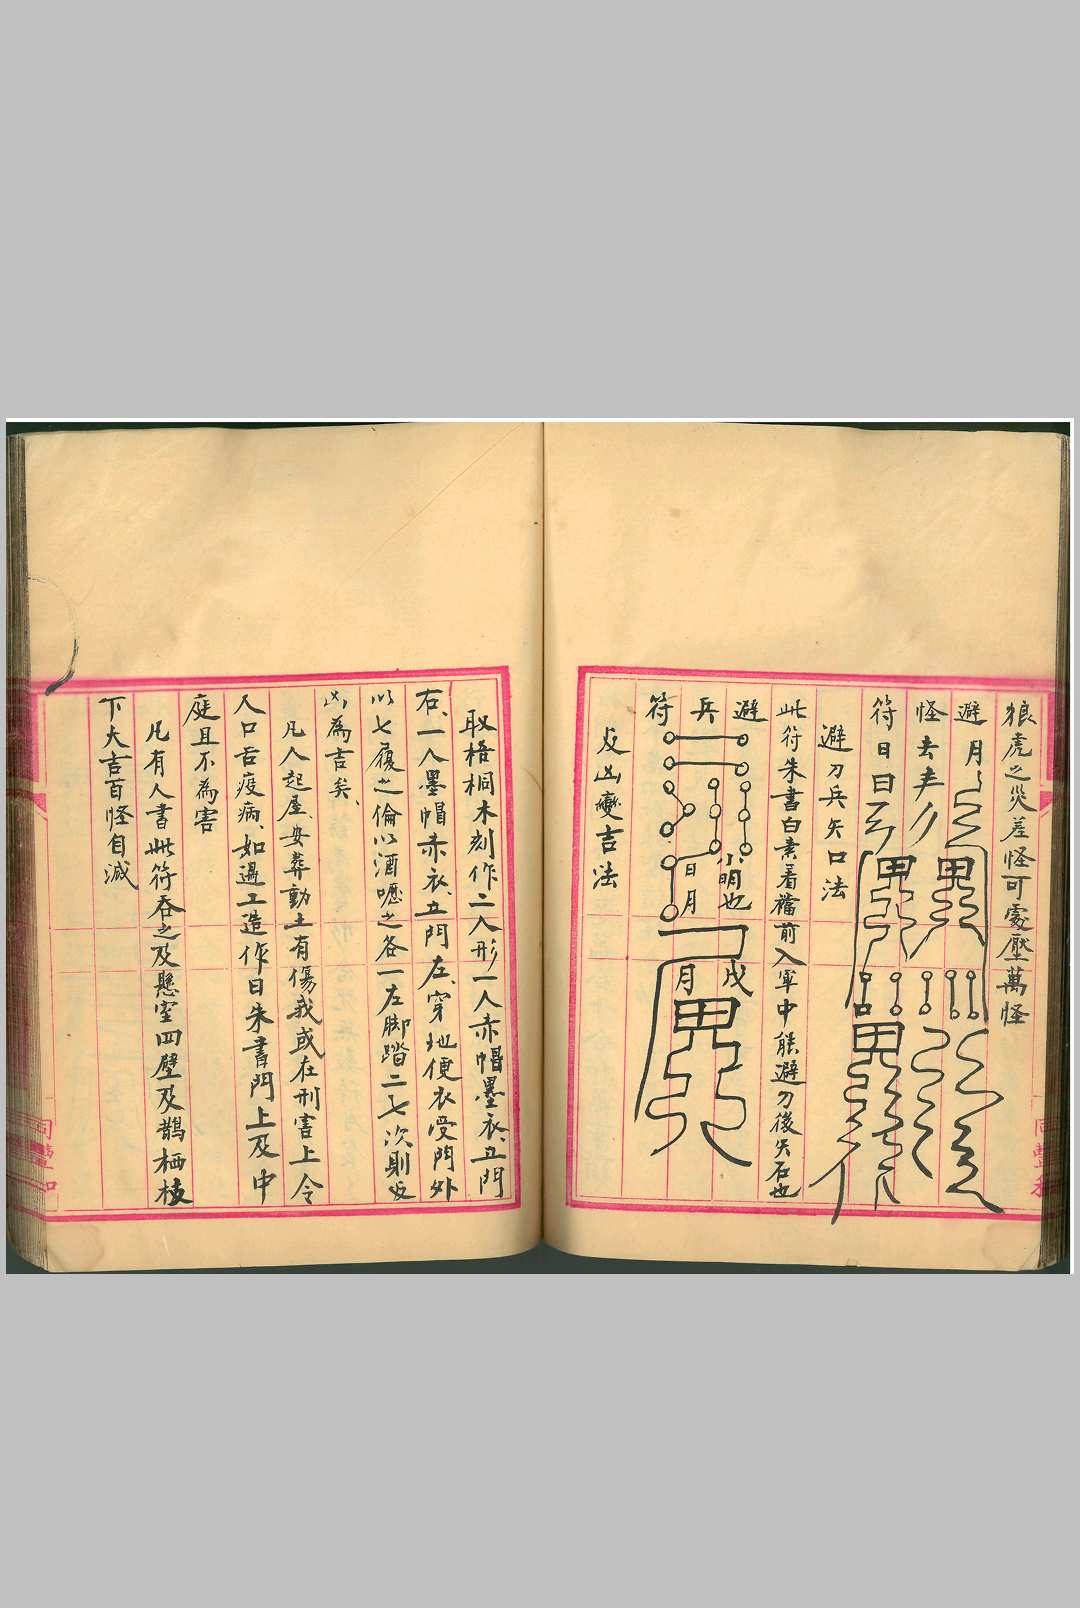 狼虎之災差怪可處壓萬怪
避怪符
避刀兵矢口法
此符朱書白素着襠前入軍中能避刀後矢石也
避兵符
反凶變吉法
取梧桐木刻作二人形一人赤帽墨衣、立門
右、一人墨帽赤衣、立門左、穿地便衣受門外
以七履之倫以酒噀之各一左脚踏二七次則反
凶為吉矣、
凡人起屋、安葬動土有傷我或在刑害上令
人口舌疫病、如遇工造作日朱書門上及中
庭且不為害
凡有人書此符吞之及懸室四壁及鵲栖枝
下大吉百怪自滅